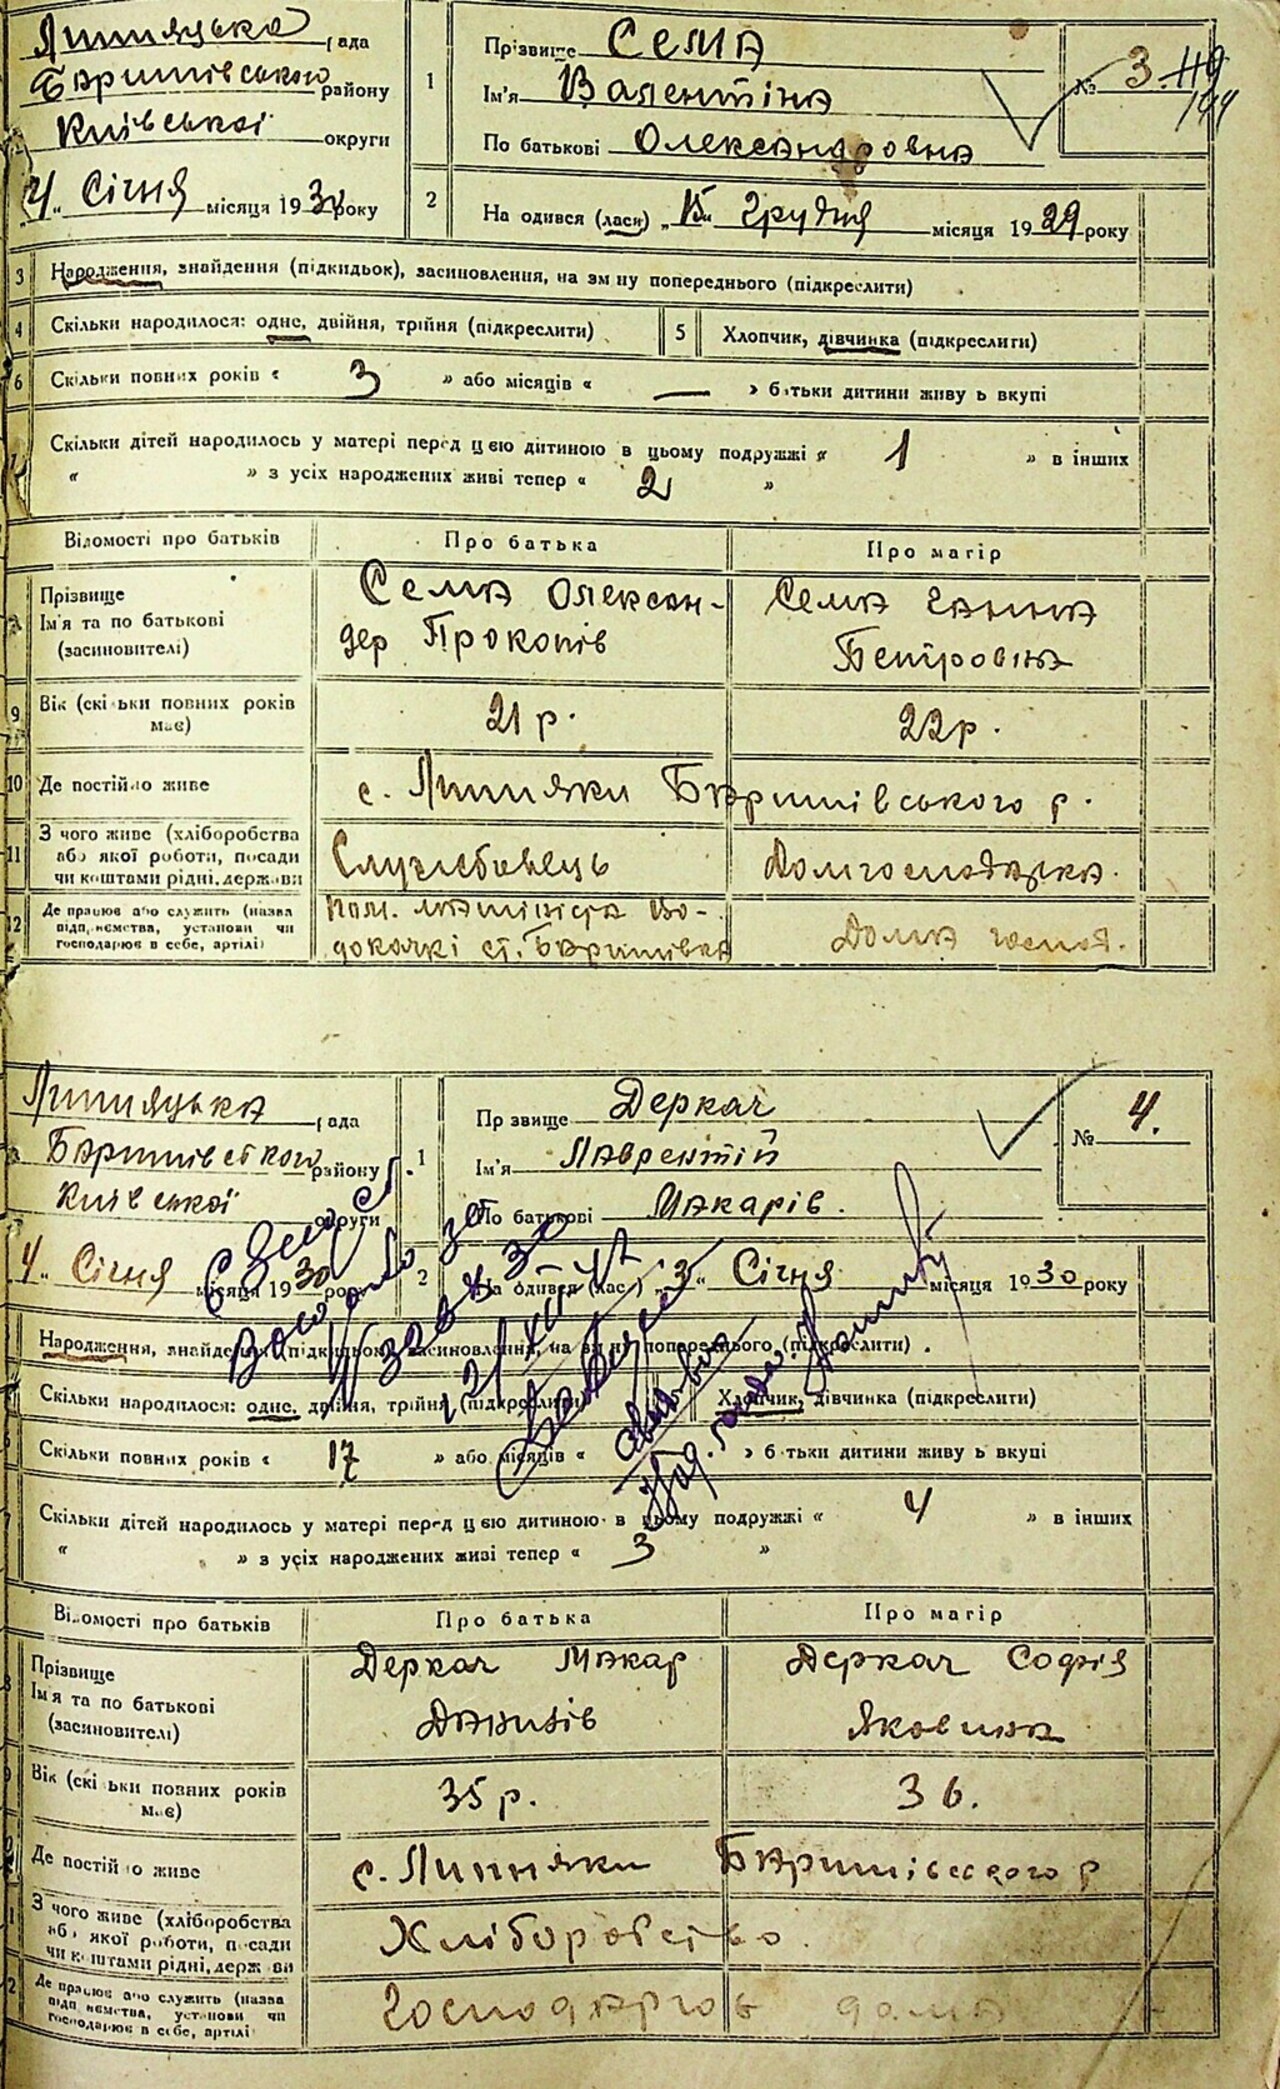 Липняцька рада
Баришівського району
Київської округи
"4" Січня місяця 1930 року
1
Прізвище Сема
Ім'я Валентіна
По батькові Олександровна
№ 3. 119
2
На одився (лася) "15" Грудня місяця 1929 року
3 Народження, знайдення (підкидьок), засиновлення, на зм ну попереднього (підкреслити)
4 Скільки народилося: одне, двійня, трійня (підкреслити) 5 Хлопчик, дівчинка (підкреслити)
6 Скільки повних років « 3 » або місяців « — » батьки дитини живу ь вкупі
Скільки дітей народилось у матері перед цією дитиною в цьому подружжі « 1 » в інших
« » з усіх народжених живі тепер « 2 »
Відомості про батьків Про батька Про матір
Прізвище
Ім'я та по батькові
(засиновителі)
Сема Олексан-
дер Прокопів
Сема Ганна
Петровна
9 Вік (скільки повних років
має)
21 р. 22 р.
10 Де постійно живе с. Липняки Баришівського р.
11 З чого живе (хліборобства
або якої роботи, посади
чи коштами рідні, держави
Служебовець Домгосподарка.
12 Де працює або служить (назва
підприємства, установи чи
господарює в себе, артілі)
Пом. машініста во-
докачкі ст. Баришівка
Дома господ.
Липняцька рада
Баришівського району
Київської округи
"4" Січня місяця 1930 року
1
Пр звище Деркач
Ім'я Лаврентій
По батькові Макарів.
№ 4.
2
На одився (лас ) "3" Січня місяця 1930 року
Народження, знайдення (підкидьок), засиновлення, на зм ну попереднього (підкреслити)
Скільки народилося: одне, двійня, трійня (підкреслити) Хлопчик, дівчинка (підкреслити)
Скільки повних років « 17 » або місяців « » батьки дитини живу ь вкупі
Скільки дітей народилось у матері перед цією дитиною в цьому подружжі « 4 » в інших
« » з усіх народжених живі тепер « 3 »
Відомості про батьків Про батька Про матір
Прізвище
Ім'я та по батькові
(засиновителі)
Деркач Макар
Данилів
Деркач Софія
Яковина
Вік (скільки повних років
має)
35 р. 36.
Де постійно живе с. Липняки Баришівського р
З чого живе (хліборобства
або якої роботи, посади
чи коштами рідні, держави
Хліборобство.
Де працює або служить (назва
підприємства, установи чи
господарює в себе, артілі
Господарює дома